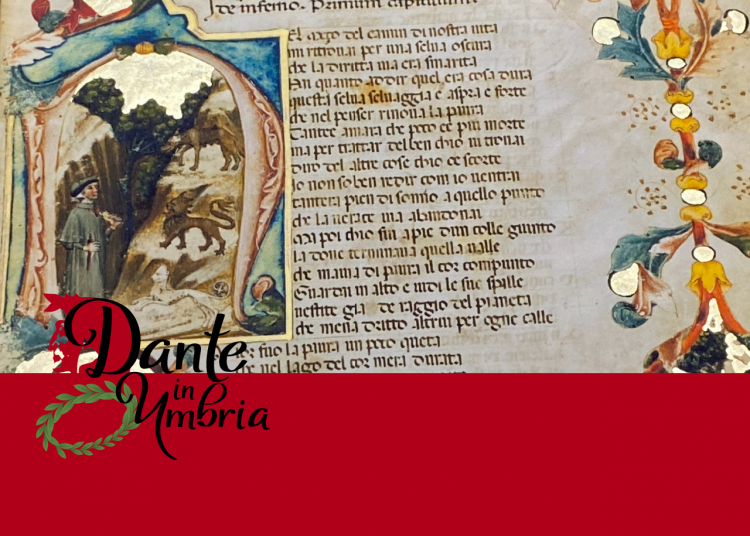 de inferno. Primum capitulum
El mezo del camin di nostra uita
mi ritrouai per una selua oscura
che la diritta uia era smarita
quanto ad dir quel era cosa dura
questa selua seluaggia e aspra e forte
che nel penser rinoua la paura
Tantee amara che poco ee piu morte
ma per trattar del ben chio ui trouai
diro del altre cose chio ce scorte
Io non so ben redir com io uentrai
tantera pien di sonno a quello punto
che la uerace uia abandonai
Ma poi chio fui a pie dun colle giunto
la doue terminaua quella ualle
che mauia di paura il cor compunto
Guardai in alto e uidi le sue spalle
uestite gia de raggio del pianeta
che mena dritto altrui per ogne calle
fuo la paura un poco queta
nel lago del cor mera durata
Dante
in
Umbria